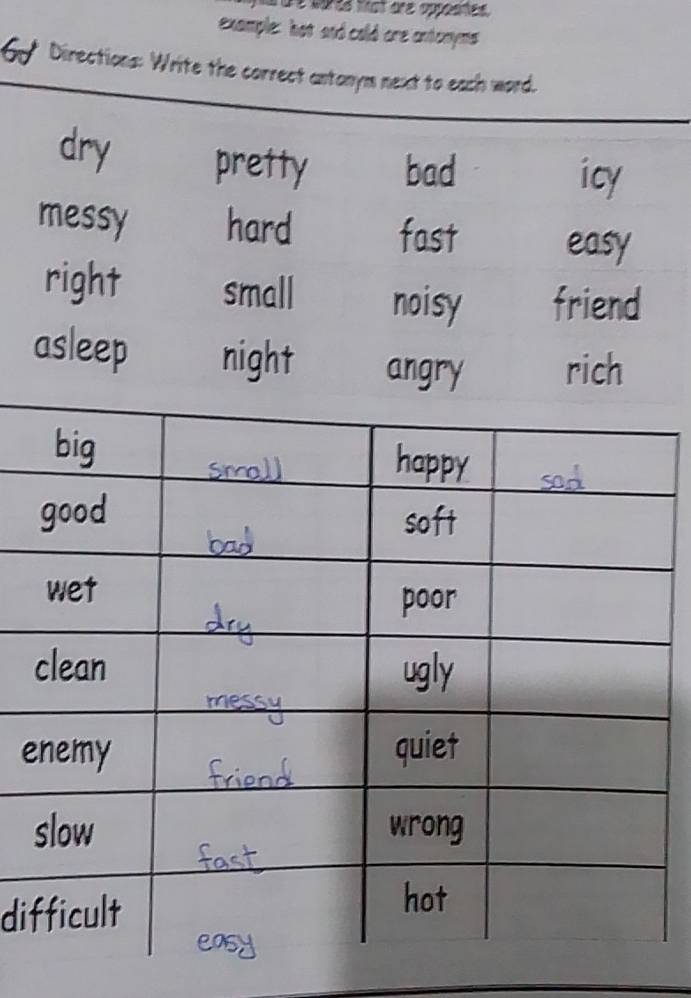 are words that are opposites.
example: hot and cold are antonyms
Directions: Write the correct antonym next to each word.
dry pretty bad icy
messy hard fast easy
right small noisy friend
asleep night angry rich
big small happy sad
good bad soft
wet dry poor
clean messy ugly
enemy friend quiet
slow fast wrong
difficult easy hot